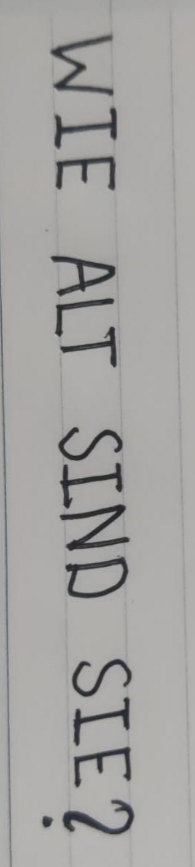 WIE ALT SIND SIE?